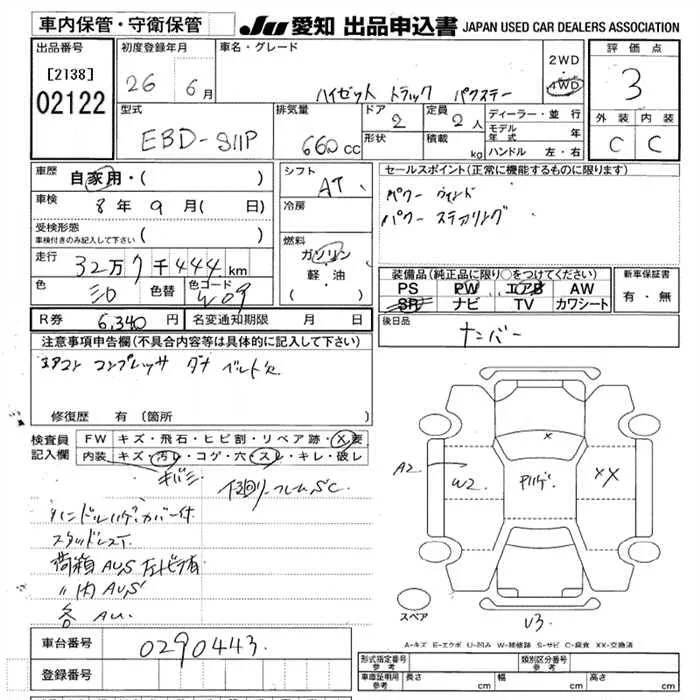 車内保管・守衛保管 JU 愛知 出品申込書 JAPAN USED CAR DEALERS ASSOCIATION
出品番号 [2138] 02122
初度登録年月 26 6月
車名・グレード ハイゼット トラック
2WD・4WD
評価点 3
外装 内装
C C
型式 EBD-S11P
排気量 660cc
ドア 2
形状
定員 2人
積載 kg
ディーラー・並行
モデル年式 年
ハンドル 左・右
車歴 自家用・( )
車検 8年 9月( 日)
受検形態 車検付きのみ記入して下さい ( )
走行 32万7千444km
色 シロ 色替 色コード W09
R券 6,340円 名変通知期限 月 日
シフト AT
冷房
燃料 ガソリン・軽・油 ( )
セールスポイント(正常に機能するものに限ります)
パワー ウィンド
パワー ステアリング
装備品(純正品に限り○をつけてください)
PS PW エアB AW
SR ナビ TV カワシート
新車保証書 有・無
後日品 ナンバー
注意事項申告欄(不具合内容等は具体的に記入して下さい)
エアコン コンプレッサ ダナ ベルト欠
修復歴 有(箇所
検査員記入欄
FW キズ・飛石・ヒビ割・リペア跡・X要
内装 キズ・汚レ・コゲ・穴・スレ・キレ・破レ
キバミ
下回リフレームS,C
ハンドルハゲ、カバー付
スタッドレス
荷箱AU,S
〃内AU,S
各AU.
A2 W2 XX X U3
スペア
A-キズ E-エクボ U-凹み W-補修跡 S-サビ C-腐食 XX-交換済
車台番号 0290443.
登録番号
形式指定番号 参考 類別区分番号 参考
車庫証明用 参考 長さ cm 幅 cm 高さ cm